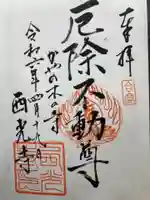 奉拝
厄除不動尊
かやの木の寺
令和六年四月十九日
西光寺